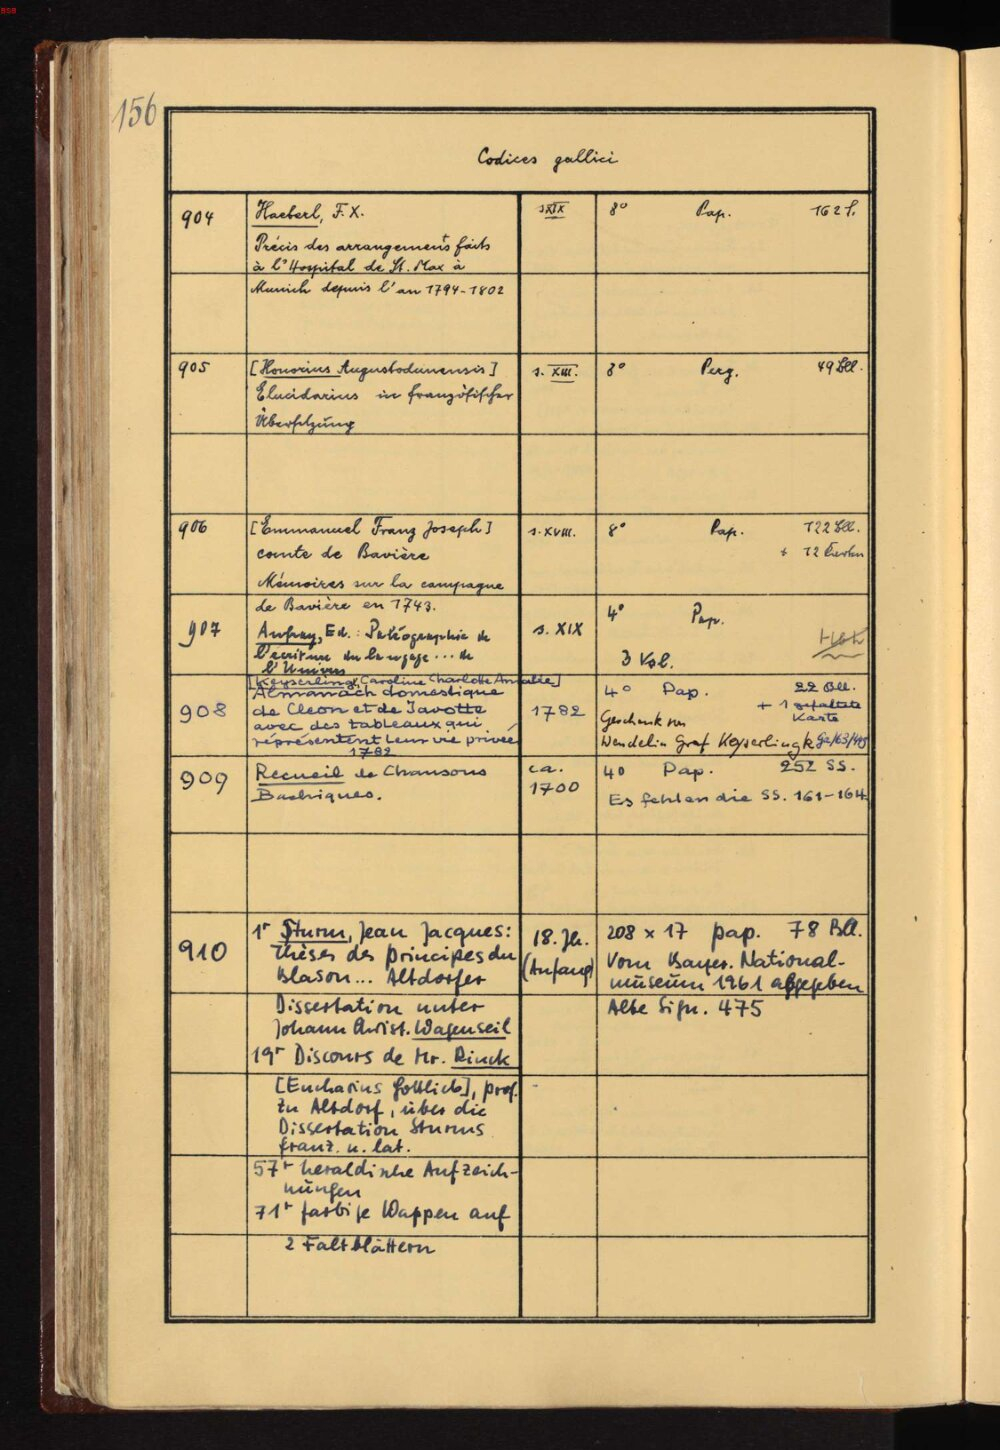 BSB
156
Codices gallici
904
Haeberl, F. X.
Précis des arrangements faits
à l'Hospital de St. Max à
Munich depuis l'an 1794-1802
s. XIX
8°
Pap.
162 f.
905
[Honorius Augustodunensis]
Elucidarius in französischer
Übersetzung
s. XIII.
8°
Perg.
49 Bll.
906
[Emmanuel Franz Joseph]
comte de Bavière
Mémoires sur la campagne
de Bavière en 1743.
s. XVIII.
8°
Pap.
122 Bll.
+ 12 Karten
907
Ed.: Paléographie de
l'écriture du langage ... de
l'Univers
s. XIX
4°
Pap.
3 Vol.
908
[Keyserling, Caroline Charlotte Amalie]
Almanach domestique
de Cleon et de Javotte
avec des tableaux qui
représentent leur vie privée
1782
1782
4° Pap. 22 Bll.
+ 1 gefaltete
Karte
Geschenk von
Wendelin Graf Keyserlingk
909
Recueil de Chansons
Bachiques.
ca.
1700
4° Pap. 252 SS.
Es fehlen die SS. 161-164
910
1r Sturm, Jean Jacques:
Thèses des principes du
Blason... Altdorfer
Dissertation unter
Johann Christ. Wagenseil
19r Discours de Mr. Rinck
[Eucharius Gottlieb], prof.
zu Altdorf, über die
Dissertation Sturms
franz. u. lat.
57r heraldische Aufzeich-
nungen
71r farbige Wappen auf
2 Faltblättern
18. Jh.
(Anfang)
208 x 17 pap. 78 Bll.
Vom Bayer. National-
museum 1961 abgegeben
Alte Sign. 475